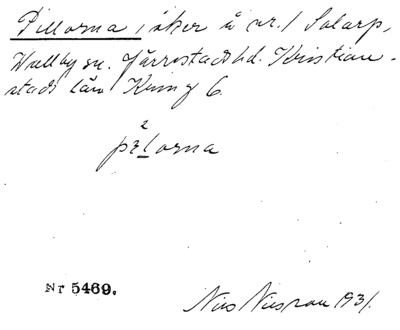 Pillorna, åker å nr. 1 Solarp,
Wallby sn. Järrestads hd. Kristian-
stads län King 6.
2
pɪlorna
Nr 5469.
Nils Nilsson 1931.